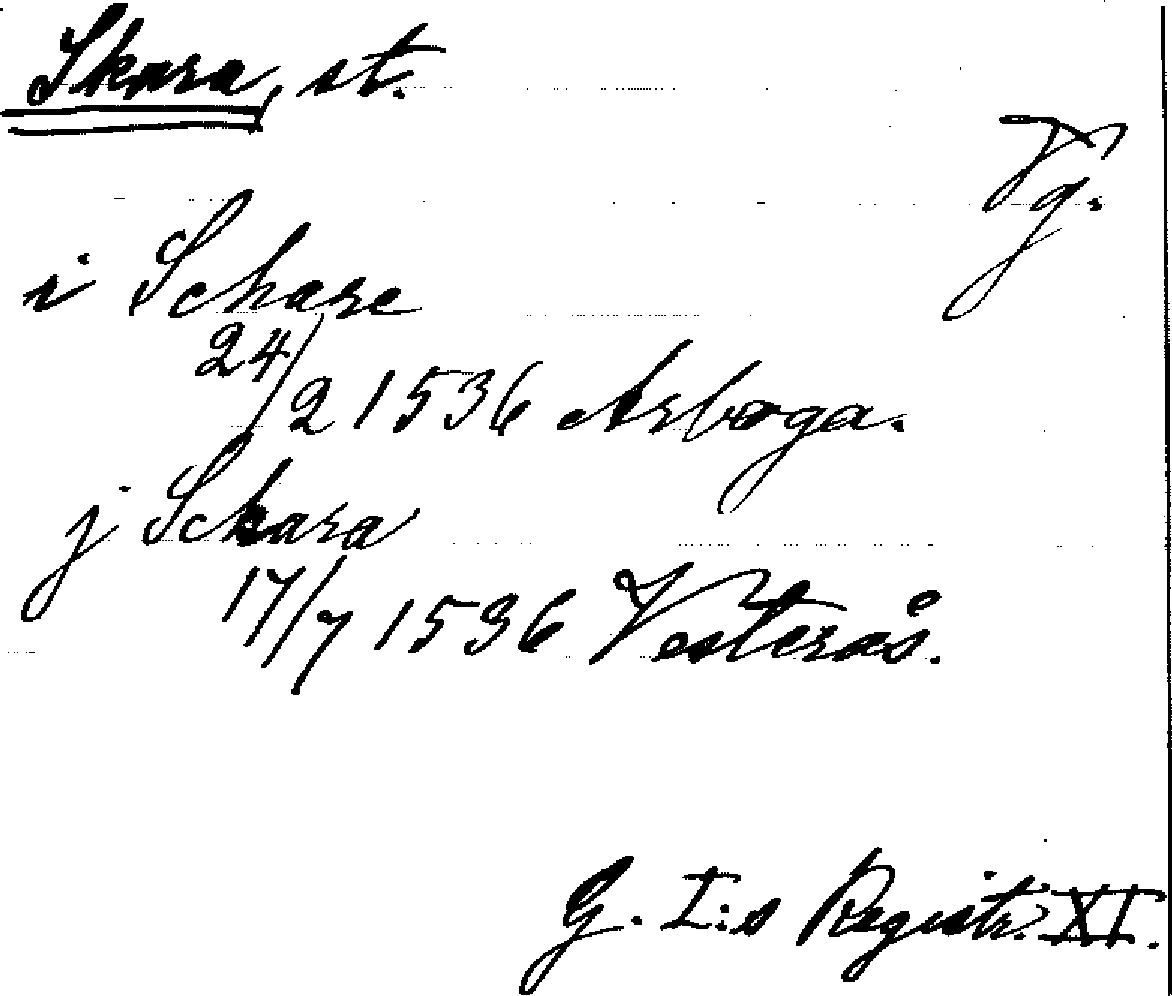 Skara, st.
Vg.
i Schare
24/2 1536 Arboga.
j Schara
17/7 1536 Vesterås.
G. I:s Registr. XI.